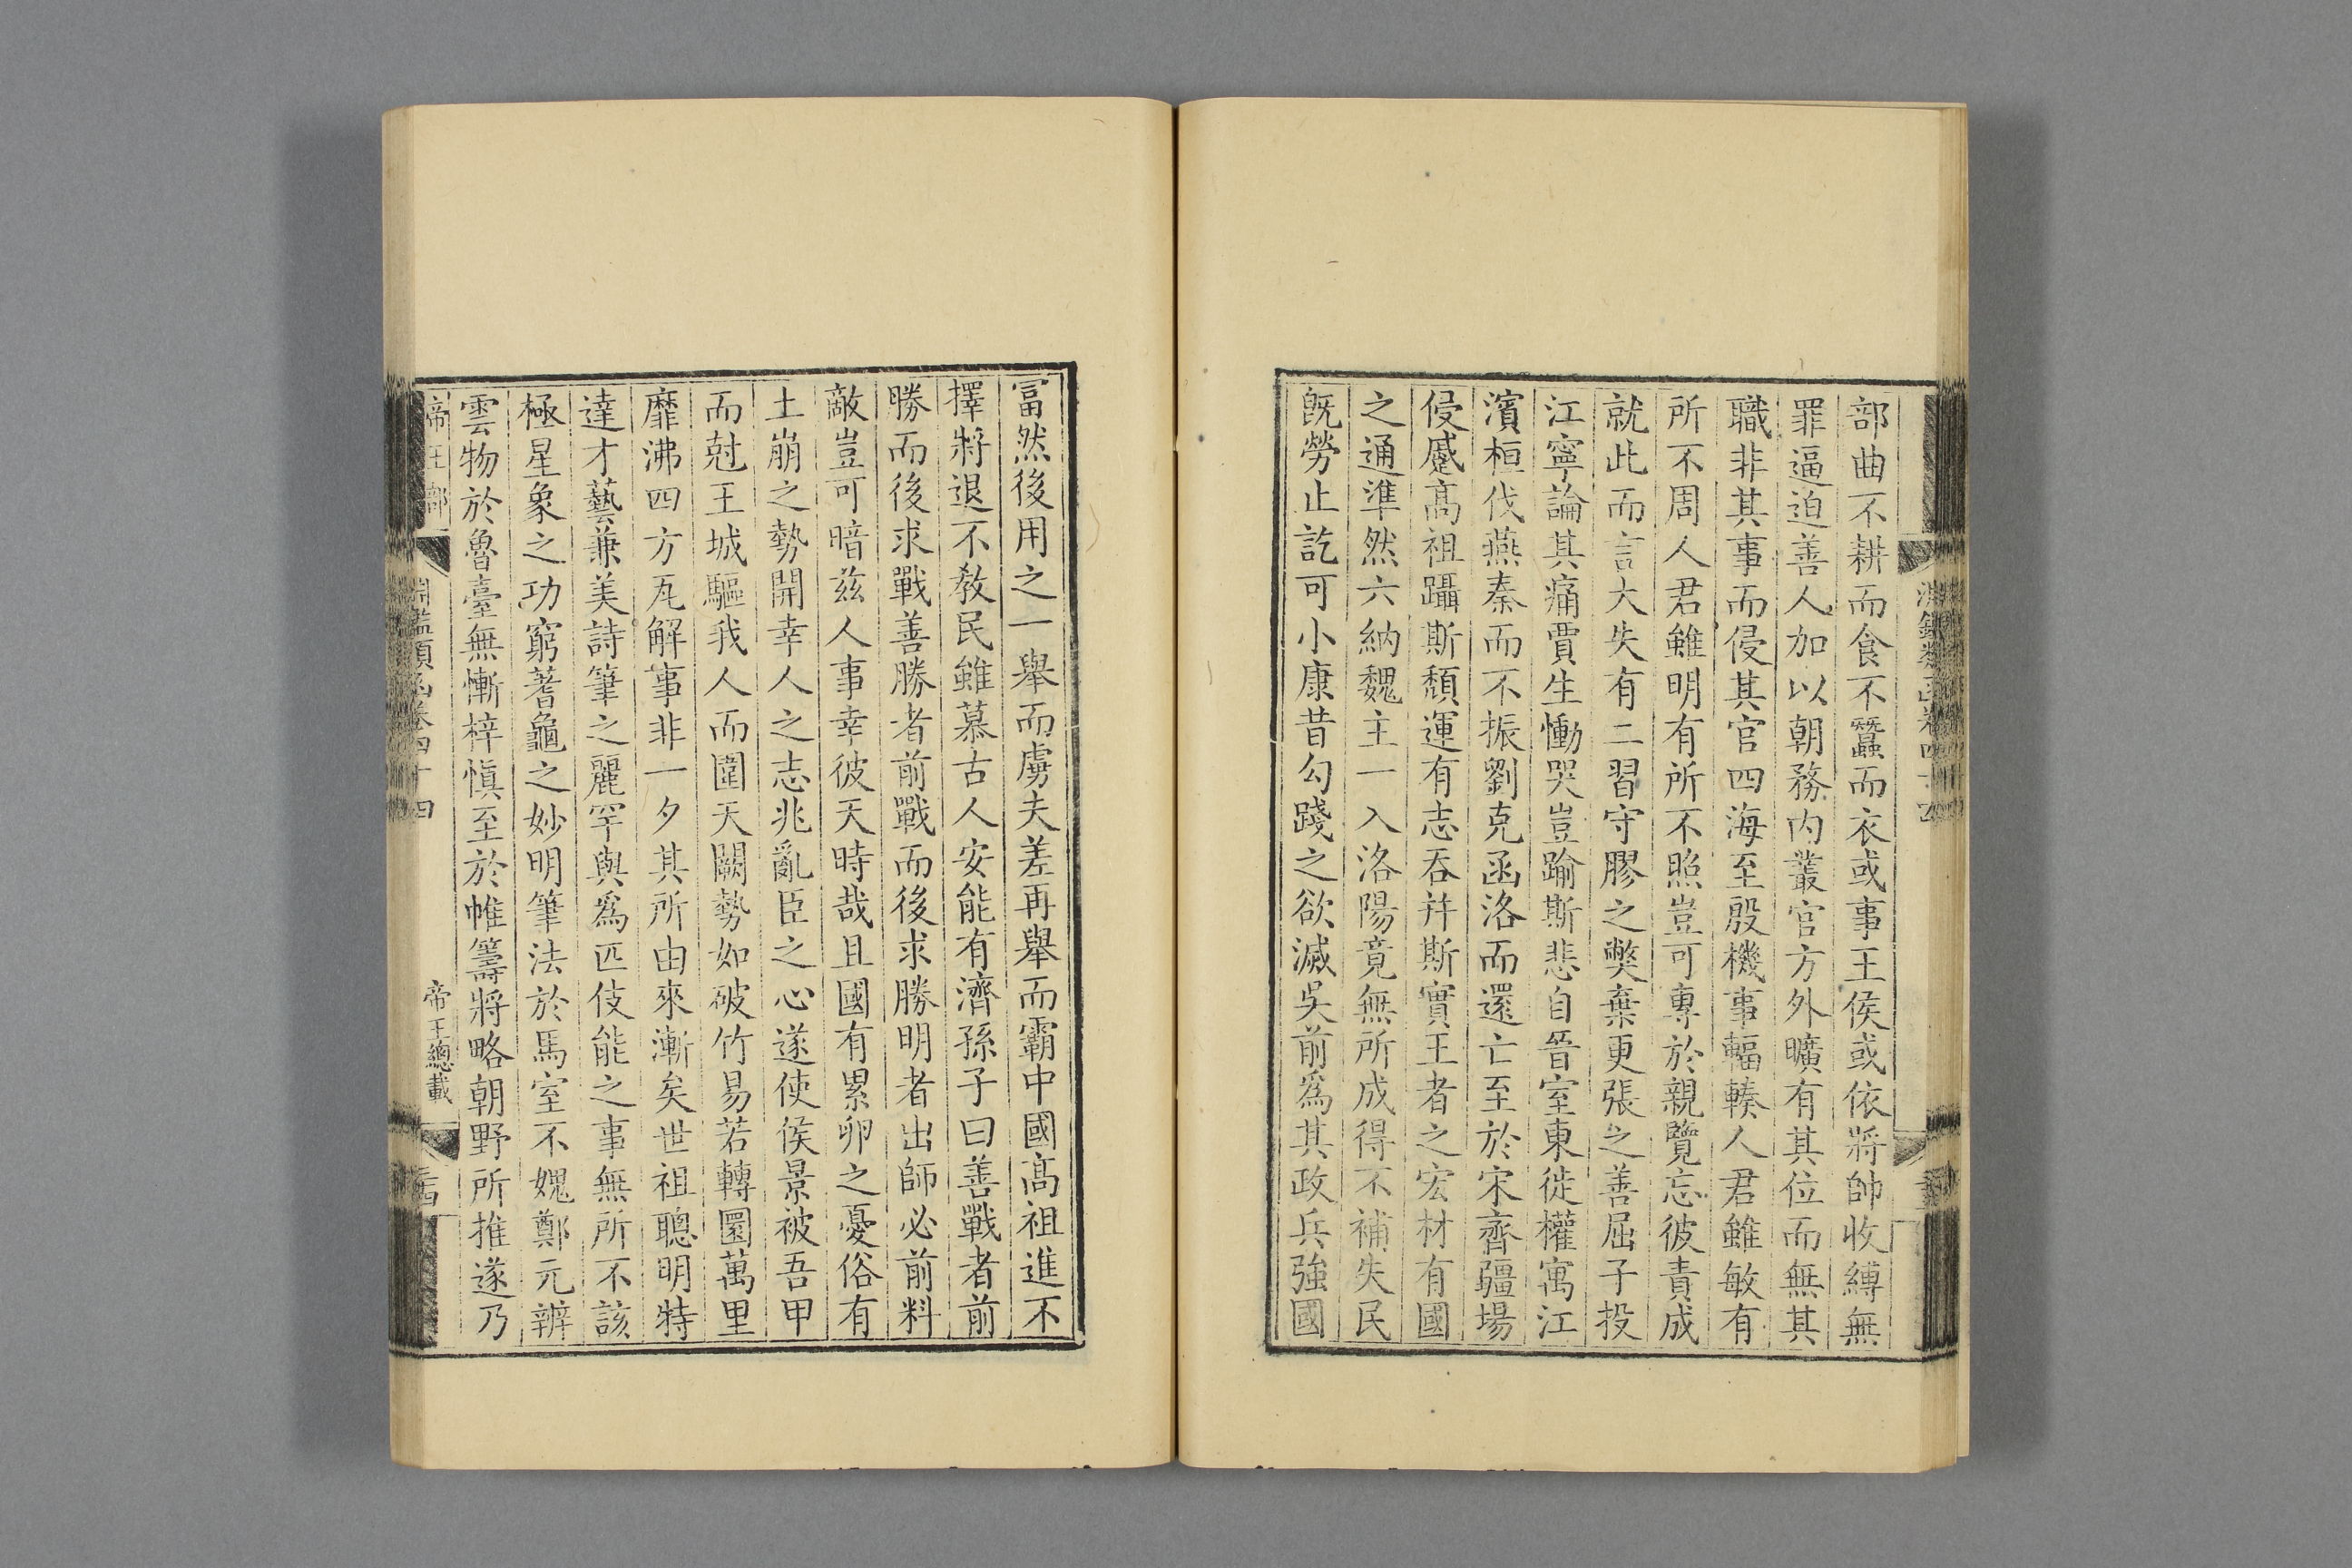 部曲不耕而食不蠶而衣或事王侯或依將帥收縛無
罪逼迫善人加以朝務内叢官方外曠有其位而無其
職非其事而侵其官四海至殷機事輻輳人君雖敏有
所不周人君雖明有所不照豈可專於親覽忘彼責成
就此而言大失有二習守膠之獘棄更張之善屈子投
江寧論其痛賈生慟哭豈踰斯悲自晉室東徙權寓江
濱桓伐燕秦而不振劉克函洛而還亡至於宋齊疆場
侵蹙髙祖躡斯頽運有志吞并斯實王者之宏材有國
之通準然六納魏主一入洛陽竟無所成得不補失民
旣勞止訖可小康昔勾踐之欲滅吳前爲其政兵強國
富然後用之一舉而虜夫差再舉而霸中國髙祖進不
擇將退不敎民雖慕古人安能有濟孫子曰善戰者前
勝而後求戰善勝者前戰而後求勝明者出師必前料
敵豈可暗兹人事幸彼天時哉且國有累卵之憂俗有
土崩之勢開幸人之志兆亂臣之心遂使侯景被吾甲
而尅王城驅我人而圍天闕勢如破竹易若轉圜萬里
靡沸四方瓦解事非一夕其所由來漸矣世祖聰明特
達才藝兼美詩筆之麗罕與爲匹伎能之事無所不該
極星象之功窮蓍龜之妙明筆法於馬室不媿鄭元辨
雲物於魯臺無慚梓愼至於帷籌將略朝野所推遂乃
帝王部 淵鑑類函卷四十四 帝王總載